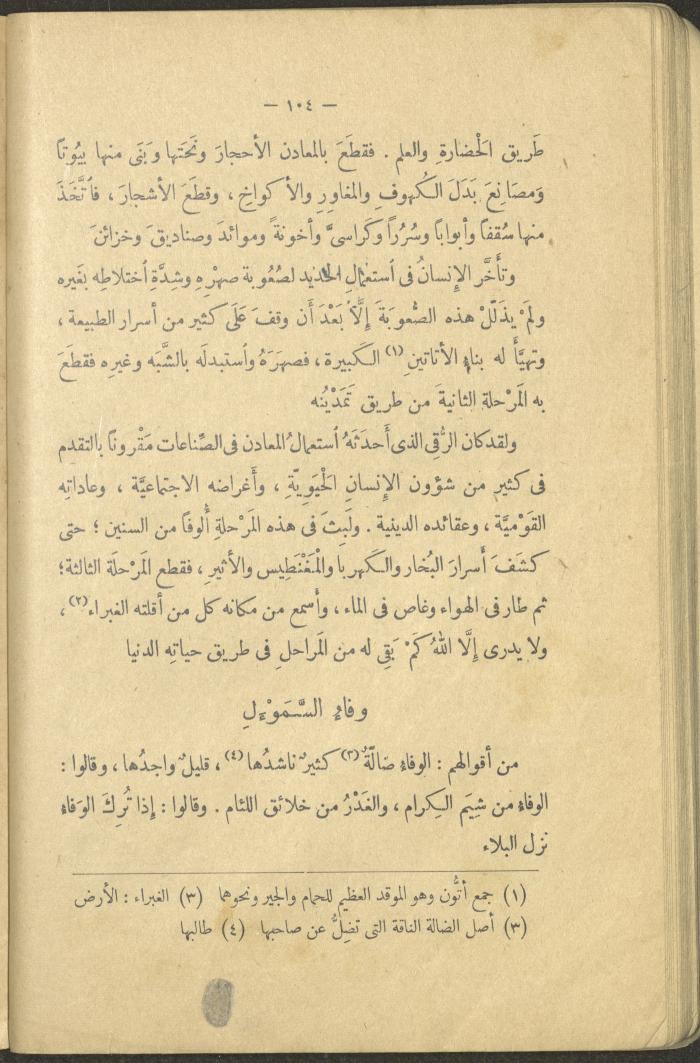 — ١٠٤ —
طَريق الحْضارةِ والعلم . فقطَعَ بالمعادن الأحجارَ ونَحَتَها وبَنَى منها بيُوتاً
وَمصَانِعَ بَدَلَ الكُهوفِ والمغاوِرِ والأكواخِ ، وقطَعَ الأشجارَ ، فاتَّخَذَ
منها سُقفاً وأبواباً وسُرُراً وكَراسىَّ وأخونةً وموائدَ وصناديقَ وخزائنَ
وتأَخَّر الإنسانُ فى اُستعمالِ الحديد لصُعُوبة صهرِْهِ وشِدَّةِ اُختلاطِه بغيره
ولَمْ يذَلّلْ هذه الصُّعوبَةَ إِلَّا بَعْدَ أَن وقفَ عَلَى كثير من أسرار الطبيعة ،
وتهيَّأ له بناءُ الأتاتينِ (١) الكَبيرة ، فصهَرَهُ واُستبدلَه بالشَّبَه وغيرِه فقطَعَ
به المَرْحلة الثانيةَ من طريق تَمَدْيُنه
ولقد كان الرُّقى الذى أَحدَثَهُ اُستعمالُ المعادن فى الصِّناعات مَقْروناً بالتقدم
فى كثير من شؤون الإنسانِ الحْيَوِيَّةِ ، وأَغراضه الاجتماعيَّة ، وعاداتِه
القَوْميَّة ، وعقائده الدينية . ولَبِثَ فى هذه المَرْحلةِ أُلوفاً من السنين ؛ حتى
كشَفَ أَسرارَ البُخار والكهرباَ والمْغَنْطِيس والأثيرِ ، فقطع المَرْحلَة الثالثة ؛
ثم طار فى الهواء وغاص فى الماء ، وأَسمع من مكانه كل من أقلته الغبراء (٢) ،
ولا يدرى إِلَّا اللهُ كَمْ بَقِى له من المَراحلِ فى طريق حياتِه الدنيا
وفاءُ السَّمَوْءَلِ
من أقوالهم : الوفاءِ ضالّةٌ (٣) كثيرٌ ناشدُها (٤) ، قليلٌ واجدُها ، وقالوا :
الوفاءِ من شِيَمِ الكِرام ، والغَدْرُ من خلائق اللئام . وقالوا : إِذا تُرِكَ الوَفاءِ
نزل البلاء
(١) جمع أتُّون وهو الموقد العظيم للحمام والجير ونحوهما (٣) الغبراء : الأرض
(٣) أصل الضالة الناقة التى تضِلُّ عن صاحبها (٤) طالبها